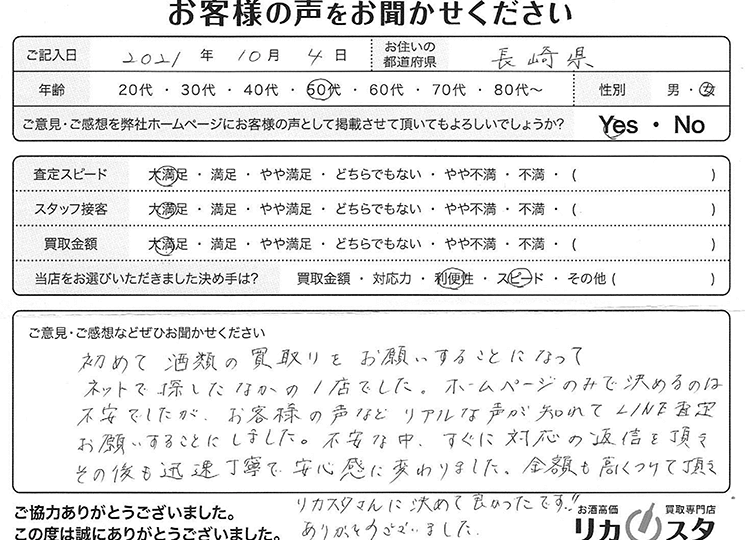 お客様の声をお聞かせください
ご記入日 2021 年 10 月 4 日 お住いの都道府県 長崎県
年齢 20代 ・ 30代 ・ 40代 ・ 50代 ・ 60代 ・ 70代 ・ 80代〜 性別 男 ・ 女
ご意見・ご感想を弊社ホームページにお客様の声として掲載させて頂いてもよろしいでしょうか? Yes ・ No
査定スピード 大満足 ・ 満足 ・ やや満足 ・ どちらでもない ・ やや不満 ・ 不満 ・ ( )
スタッフ接客 大満足 ・ 満足 ・ やや満足 ・ どちらでもない ・ やや不満 ・ 不満 ・ ( )
買取金額 大満足 ・ 満足 ・ やや満足 ・ どちらでもない ・ やや不満 ・ 不満 ・ ( )
当店をお選びいただきました決め手は? 買取金額 ・ 対応力 ・ 利便性 ・ スピード ・ その他 ( )
ご意見・ご感想などぜひお聞かせください
初めて酒類の買取りをお願いすることになって
ネットで探したなかの1店でした。ホームページのみで決めるのは
不安でしたが、お客様の声など リアルな声が知れてLINE査定
お願いすることにしました。不安な中、すぐに対応の返信を頂き
その後も迅速丁寧で安心感に変わりました。金額も高くつけて頂き
リカスタさんに決めて良かったです!!
ありがとうございました.
ご協力ありがとうございました。
この度は誠にありがとうございました。
お酒高価 買取専門店
リカスタ